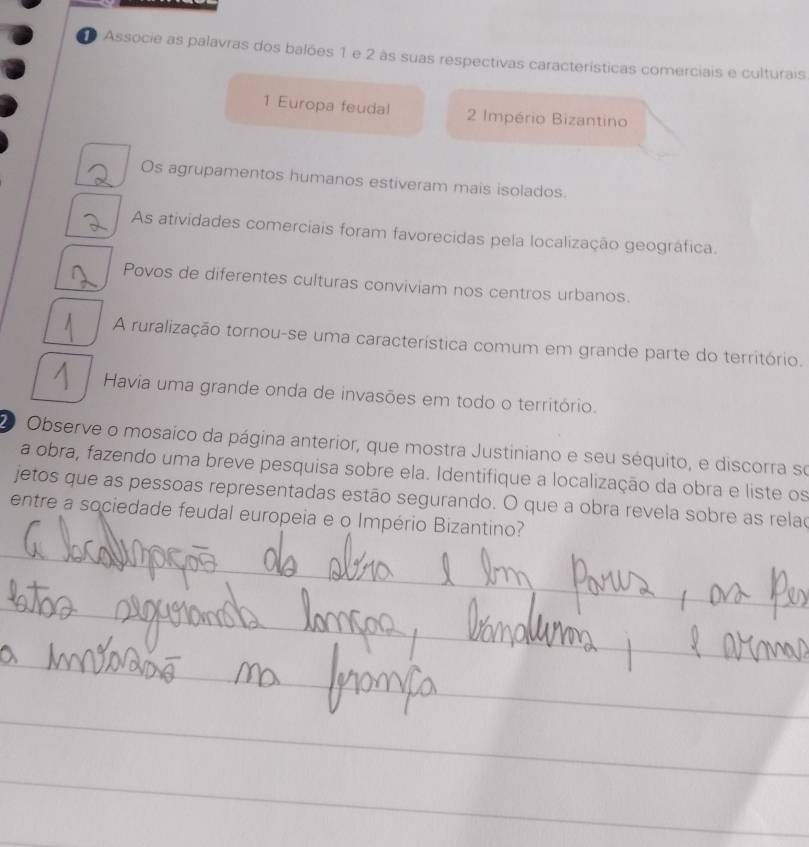 1 Associe as palavras dos balões 1 e 2 às suas respectivas características comerciais e culturais
1 Europa feudal
2 Império Bizantino
2 Os agrupamentos humanos estiveram mais isolados.
2 As atividades comerciais foram favorecidas pela localização geográfica.
2 Povos de diferentes culturas conviviam nos centros urbanos.
1 A ruralização tornou-se uma característica comum em grande parte do território.
1 Havia uma grande onda de invasões em todo o território.
2 Observe o mosaico da página anterior, que mostra Justiniano e seu séquito, e discorra so
a obra, fazendo uma breve pesquisa sobre ela. Identifique a localização da obra e liste os
jetos que as pessoas representadas estão segurando. O que a obra revela sobre as relaç
entre a sociedade feudal europeia e o Império Bizantino?
a localização da obra é em Paris, as pes
estão segurando lanças, bandeiras, e armas
a invasão na frança